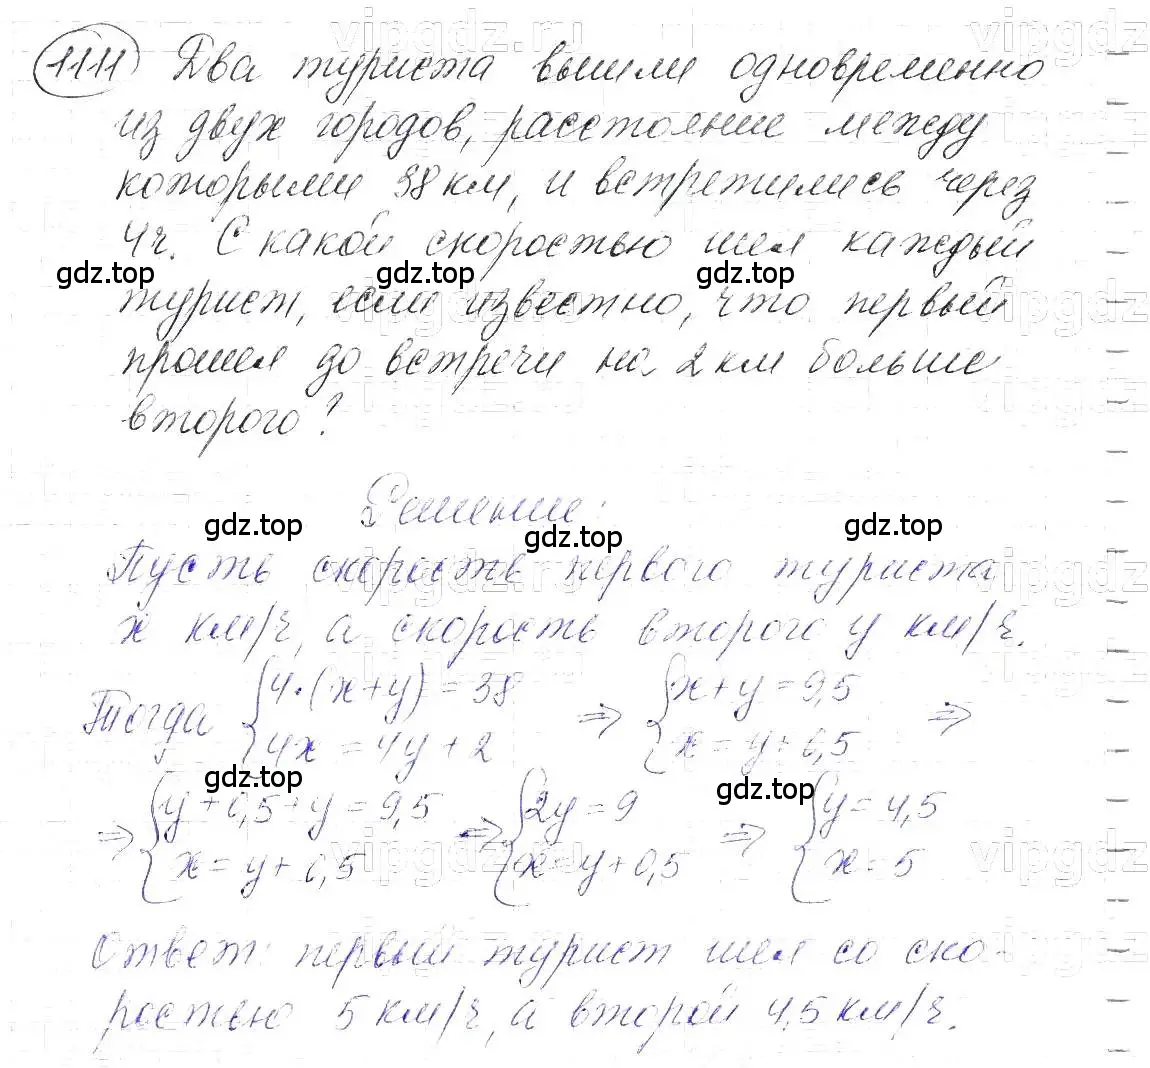 1111 Два туриста вышли одновременно
из двух городов, расстояние между
которыми 38 км, и встретились через
4ч. С какой скоростью шел каждый
gdz.top gdz.top gdz.top
турист, если известно, что первый
прошел до встречи на 2 км больше
второго?
Решение:
gdz.top gdz.top gdz.top
Пусть скорость первого туриста
x км/ч, а скорость второго y км/ч.
Тогда { 4·(x+y) = 38 ⇒ { x+y = 9,5 ⇒
4x = 4y + 2 x = y + 0,5
gdz.top gdz.top
⇒ { y + 0,5 + y = 9,5 ⇒ { 2y = 9 ⇒ { y = 4,5
x = y + 0,5 x = y + 0,5 x = 5
Ответ: первый турист шел со ско-
ростью 5 км/ч, а второй 4,5 км/ч.
vipgdz.ru